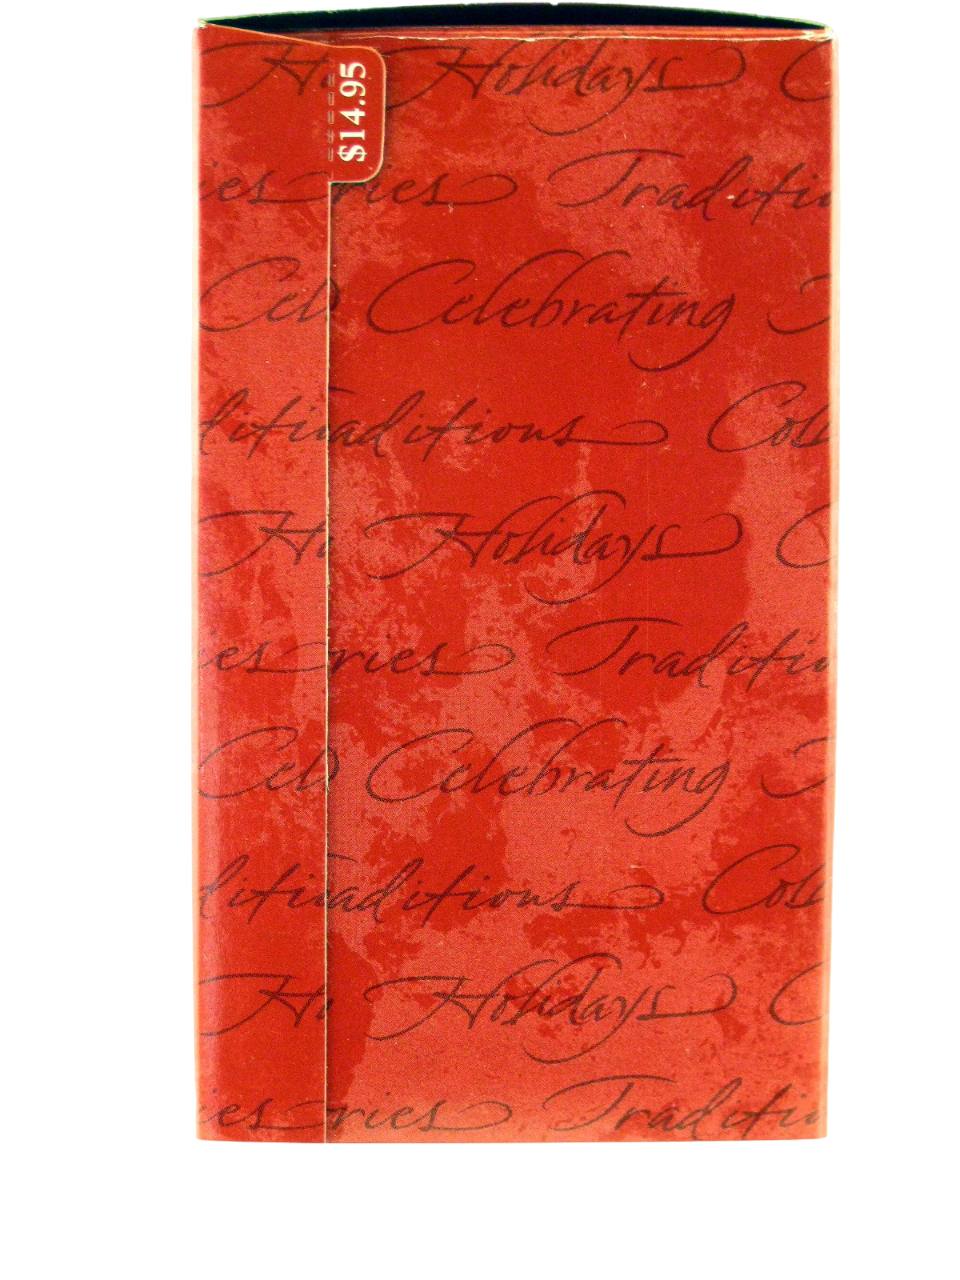 $14.95
Ho Holidays C
ies ries Traditio
Cel Celebrating
diti aditions Col
Ho Holidays C
ies ries Traditio
Cel Celebrating
diti aditions Col
Ho Holidays C
ies ries Traditio